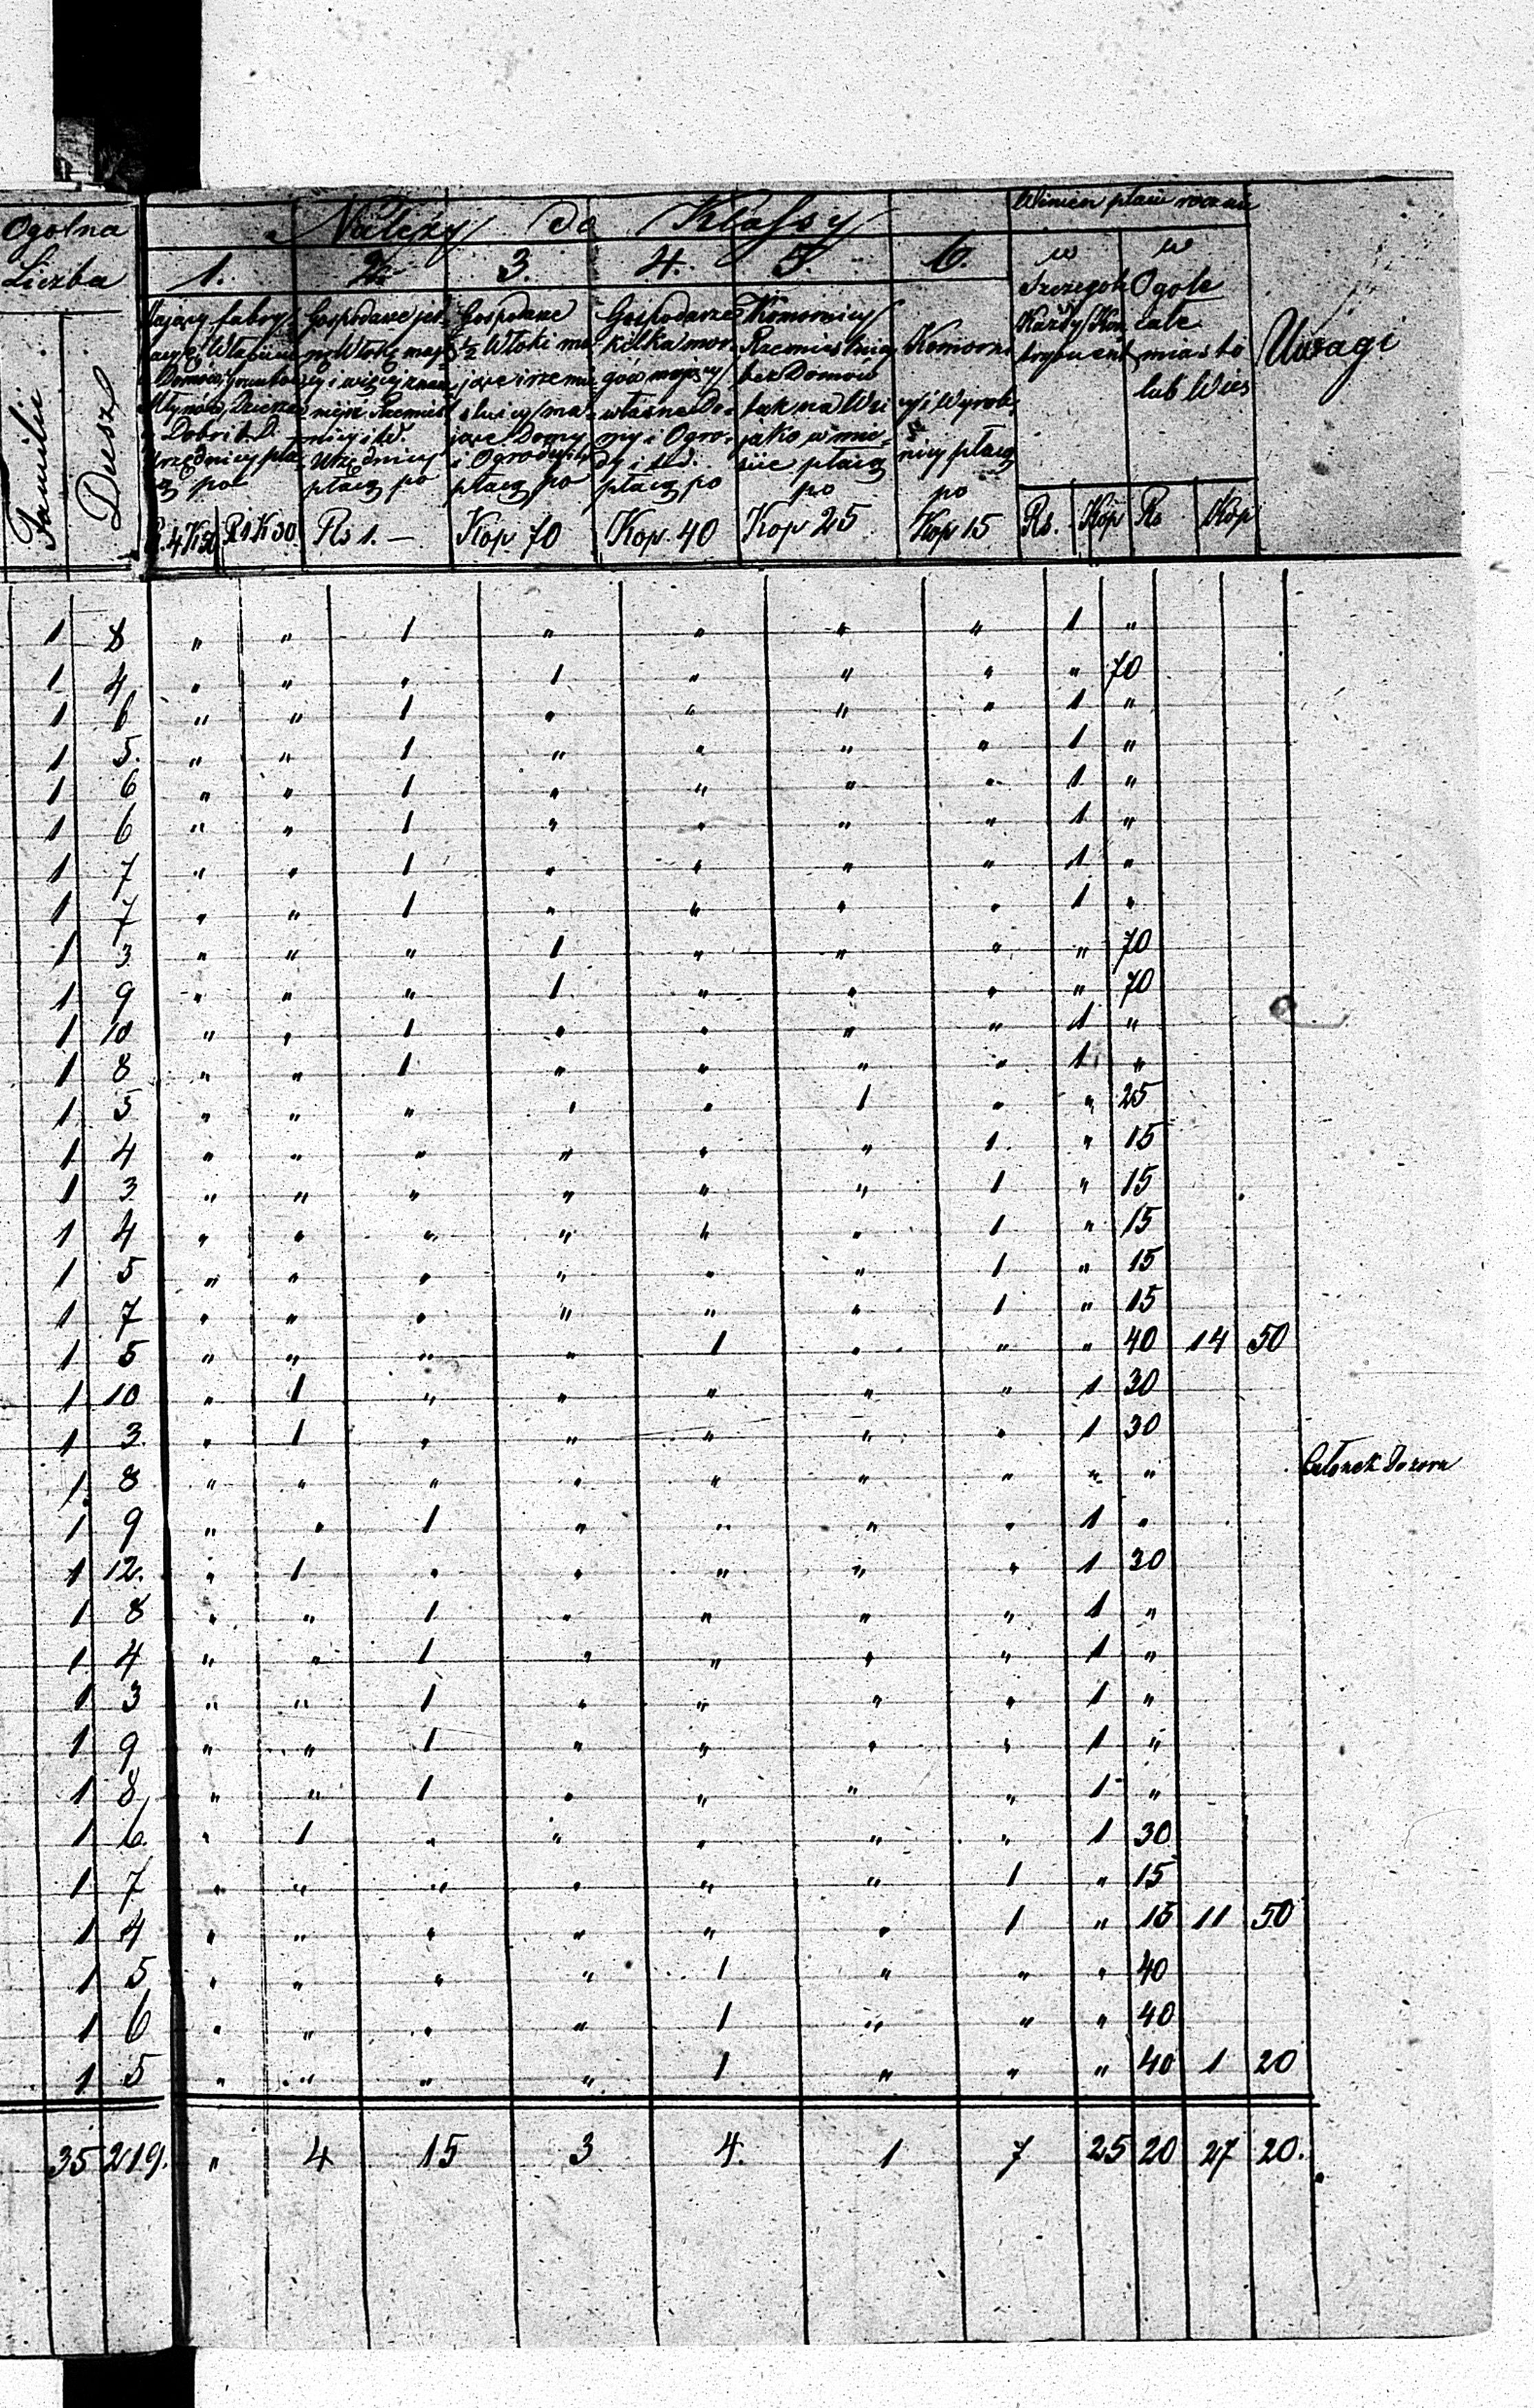 Ogolna
Liczba
Familii
Dusz
Należy do Klassy
Winien płacić rocznie
1.
2.
3.
4.
5.
6.
w Szczegole Każdy Kon trybuent
w Ogole całe miasto lub Wies
Uwagi
Mający fabry
Domów, gruntów
Młynów, Dzierża
Dobr i t. d.
Urzędnicy pła
cą po
R. 4 K 50
R 1 K 30
Gospodarze jed
ną Włokę mają
cy i więcej znacz
niejsi Rzemieśl
nicy i t.d.
Urzędnicy
płacą po
Rs 1. —
Gospodarze
½ Włoki ma
jące i rzemie
slnicy ma
jące Domy
i Ogrody itd
płacą po
Kop. 70
Gospodarze
kilka mor
gów mający
własne Do
my i Ogro
dy i t.d.
płacą po
Kop. 40
Komornicy
Rzemieslnicy
bez Domow
tak na Wsi
jako w mie
scie płacą
po
Kop 25
Komorni
cy i Wyrob
nicy płacą
po
Kop 15
Rs. Kop Rs Kop
1 8 " " 1 " " " " 1 "
1 4 " " " 1 " " " " 70
1 6 " " 1 " " " " 1 "
1 5. " " 1 " " " " 1 "
1 6 " " 1 " " " " 1 "
1 6 " " 1 " " " " 1 "
1 7 " " 1 " " " " 1 "
1 7 " " 1 " " " " 1 "
1 3 " " " 1 " " " " 70
1 9 " " " 1 " " " " 70
1 10 " " 1 " " " " 1 "
1 8 " " 1 " " " " 1 "
1 5 " " " " " 1 " " 25
1 4 " " " " " " 1 " 15
1 3 " " " " " " 1 " 15
1 4 " " " " " " 1 " 15
1 5 " " " " " " 1 " 15
1 7 " " " " " " 1 " 15
1 5 " " " " 1 " " " 40 14 50
1 10 " 1 " " " " " 1 30
1 3 " 1 " " " " " 1 30
1 8 " " " " " " " " " Członek Dozoru
1 9 " " 1 " " " " 1 "
1 12. " 1 " " " " " 1 30
1 8 " " 1 " " " " 1 "
1 4 " " 1 " " " " 1 "
1 3 " " 1 " " " " 1 "
1 9 " " 1 " " " " 1 "
1 8 " " 1 " " " " 1 "
1 6. " 1 " " " " " 1 30
1 7 " " " " " " 1 " 15
1 4 " " " " " " 1 " 15 11 50
1 5 " " " " 1 " " " 40
1 6 " " " " 1 " " " 40
1 5 " " " " 1 " " " 40 1 20
35 219. " 4 15 3 4. 1 7 25 20 27 20.